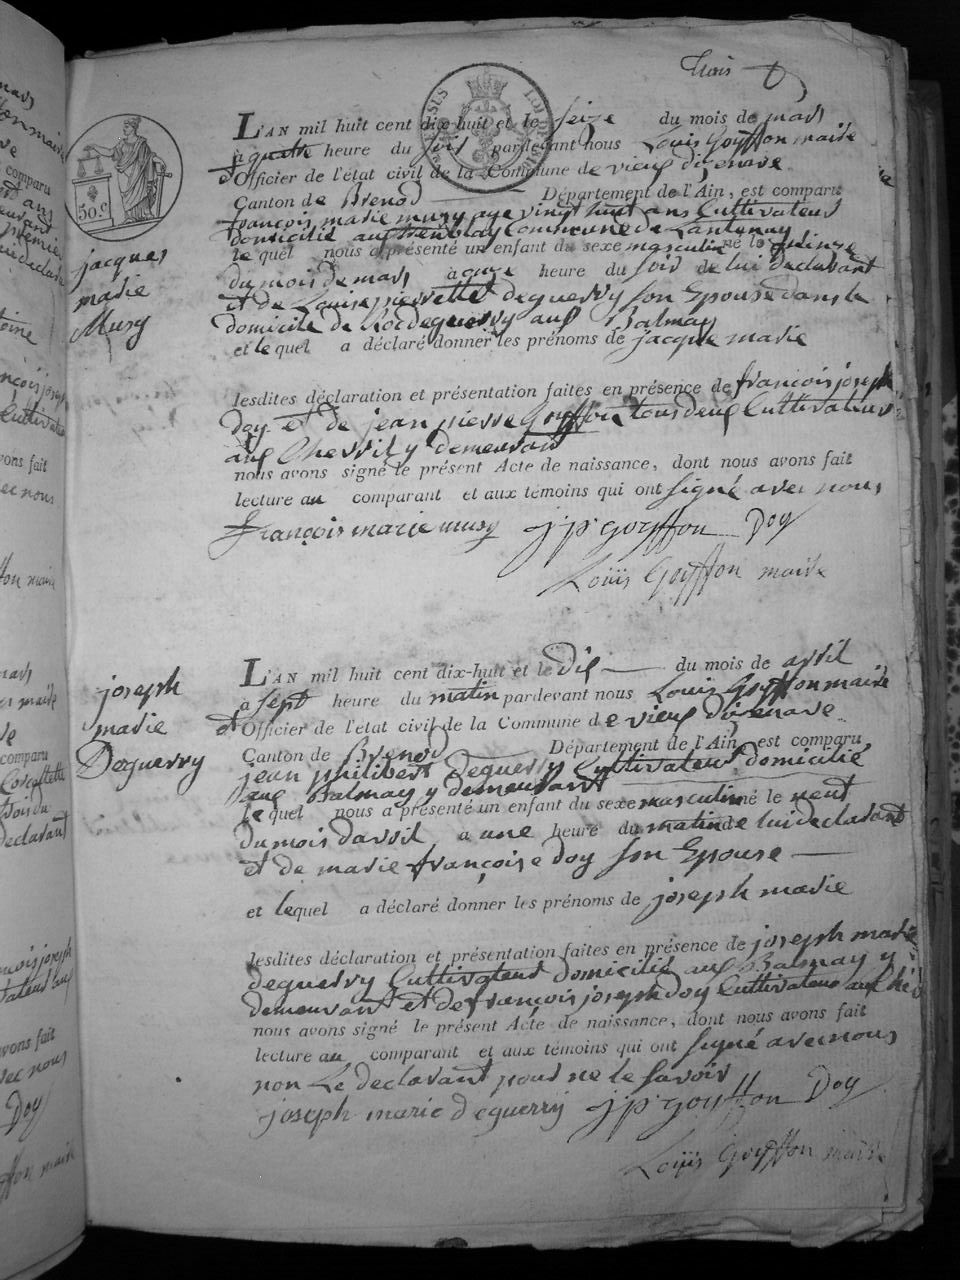 Trois
L'AN mil huit cent dix-huit et le seize du mois de mars
a quatre heure du soir pardevant nous Louis Goÿffon maire
et Officier de l'état civil de la Commune de vieux dizenave
Canton de Brenod Département de l'Ain, est comparu
françois marie musy age vingt huit ans Cultivateur
domicilié aux tremblay Commune de Lantenay
le quel nous a présenté un enfant du sexe masculin né le quinze
du mois de mars a onze heure du soir de lui declarant
et de Louise pierrette deguerry son Epouse dans le
domicile de Roc deguerry aux Balmay
et le quel a déclaré donner les prénoms de jacque marie
jacques
marie
Musy
50.c
lesdites déclaration et présentation faites en présence de françois joseph
doy et de jean pierre goyffon tous deux Cultivateur
aux Cherril y demeurant
nous avons signé le présent Acte de naissance, dont nous avons fait
lecture au comparant et aux témoins qui ont signé avec nous
françois marie musy j p goÿffon Doy
Loüis Goÿffon maire
joseph
marie
Deguerry
L'AN mil huit cent dix-huit et le dix du mois de avril
a sept heure du matin pardevant nous Louis Goyffon maire
et Officier de l'état civil de la Commune de vieux dizenave
Canton de Brenod Département de l'Ain, est comparu
jean philibert deguerry Cultivateur domicilié
aux Balmay y demeurant
le quel nous a présenté un enfant du sexe masculin né le neuf
du mois davril a une heure du matin de lui declarant
et de marie françoise doy son Epouse
et lequel a déclaré donner les prénoms de joseph marie
lesdites déclaration et présentation faites en présence de joseph marie
deguerry Cultivateur domicilié aux Balmay y
demeurant et de françois joseph doy Cultivateur aux
nous avons signé le présent Acte de naissance, dont nous avons fait
lecture au comparant et aux témoins qui ont signé avec nous
non Le declarant pour ne le savoir
joseph marie deguerry j p goÿffon Doy
Loüis Goÿffon maire